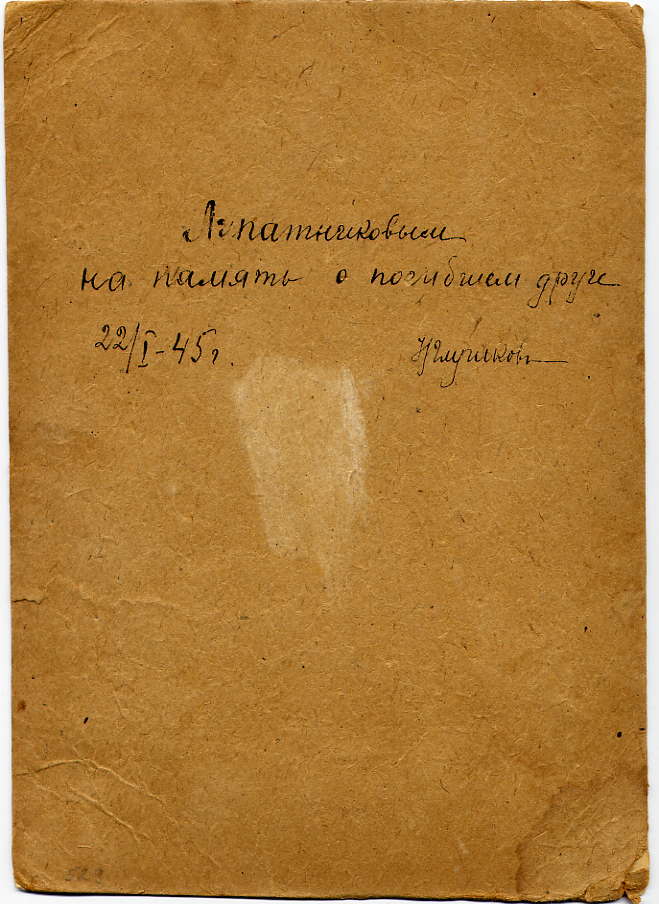 Лупатниковым
на память о погибшем друге
22/I-45г.